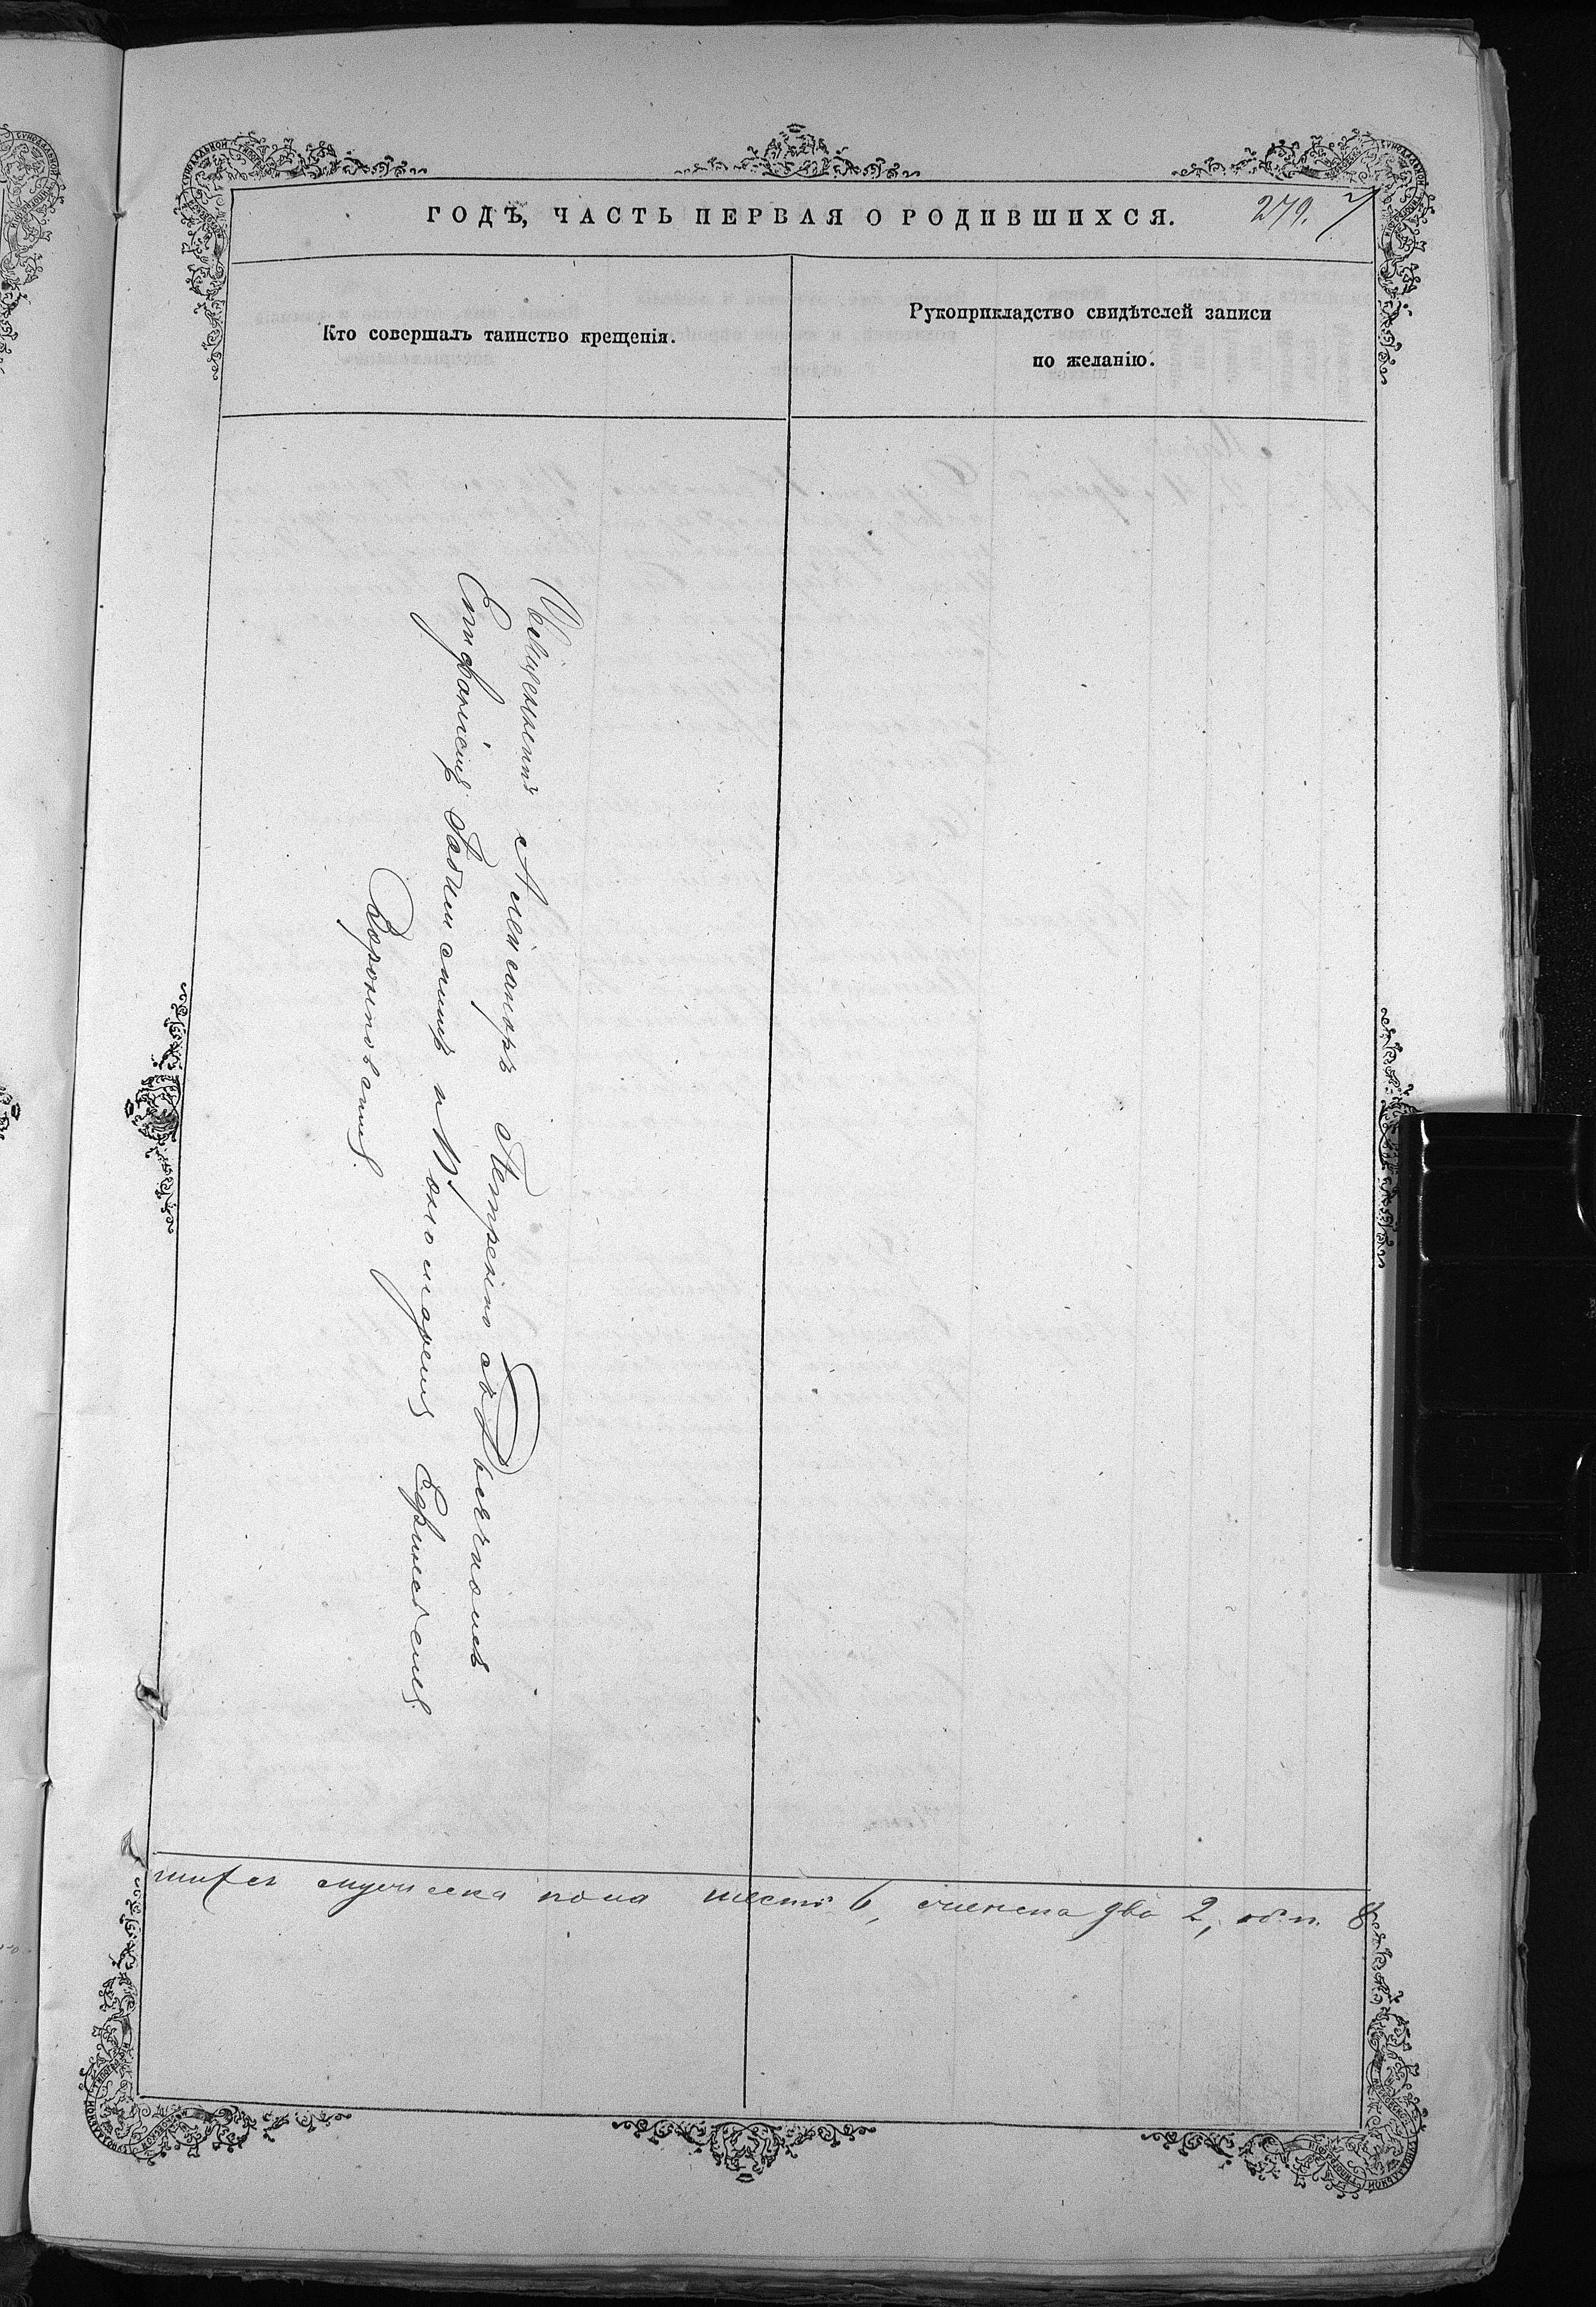 ГОДЪ, ЧАСТЬ ПЕРВАЯ О РОДИВШИХСЯ.
279. 7
Кто совершалъ таинство крещенія.
Рукоприкладство свидѣтелей записи
по желанію.
Священникъ Александръ Петренко съ Дьячкомъ
Епифаніемъ и Пономаремъ Ефимовемъ
шихся мужеска пола шесть 6, женска два 2, об. п. 8